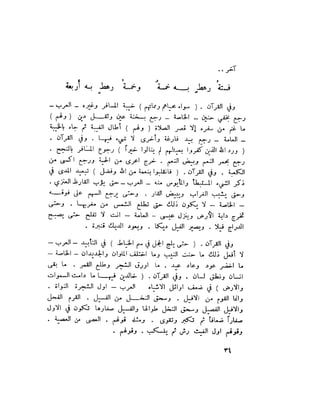 آخر ..
فستة رهط به خمسة وخمسة رهط به أربعة
وفي القرآن . ( سواء محياهم ومماتهم ) خيبة المسافر وغيره – العرب –
رجع بخفي حنين – الخاصة – رجع بسخنة عين
ما غنم من سفره إلا قصر الصلاة ( وقم ) أطال الغيبة ثم جاء بالخيبة
– العامة – رجع بيد فارغة وأخرى لا شيء فيها . وفي القرآن .
( ورد الله الذين كفروا بغيظهم لم ينالوا خيراً ) رجوع المسافر بالنجح .
رجع بحمر النعم وبيض النعم . خرج اعرى من الحية ورجع اكسى من
الكعبة . وفي القرآن . ( فانقلبوا بنعمة من الله وفضل ) تبعيد المدى في
ذكر الشيء المستبطأ والمأيوس منه – العرب – حتى يؤوب القارظ العنزي .
وحتى يشيب الغراب ويبيض القار . وحتى يرجع السهم على فوقه
– الخاصة – لا يكون ذلك حتى تطلع الشمس من مغربها . وحتى
تخرج دابة الأرض وينزل عيسى – العامة – انت لا تفلح حتى يصبح
الدراج فيلا . ويصير الفيل ديكا . ويعود الديك قنبرة .
وفي القرآن . ( حتى يلج الجمل في سم الخياط ) في التأبيد – العرب –
لا أفعل ذلك ما حنت النيب وما اختلف الملوان والجديدان – الخاصة –
ما اخضر عود وعاد عيد . ما اورق الشجر وطلع القمر . ما بقى
انسان ونطق لسان . وفي القرآن . ( خالدين فيها ما دامت السموات
والارض ) في ضعف اوائل الاشياء العرب – اول الشجرة النواة .
وانما القرم من الافيل . وسحق النخل من الفسيل . القرم الفحل
والافيل الفصيل وسحق النخل طوالها والفسيل صغارها تكون في الاول
صغاراً ضعافاً ثم تكبر وتقوى . ومثله قولهم . العصى من العصية .
وقولهم اول الغيث رش ثم ينسكب . وقولهم .
٣٤